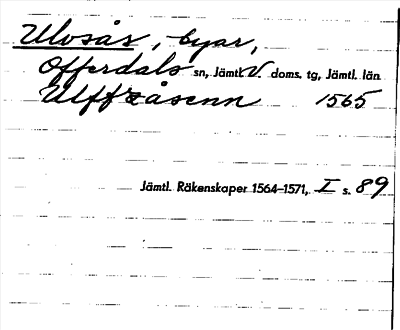 Ulvsås, byar,
Offerdals sn, Jämtl. V. doms. tg, Jämtl. län
Ulffzåsenn 1565
Jämtl. Räkenskaper 1564-1571, I s. 89